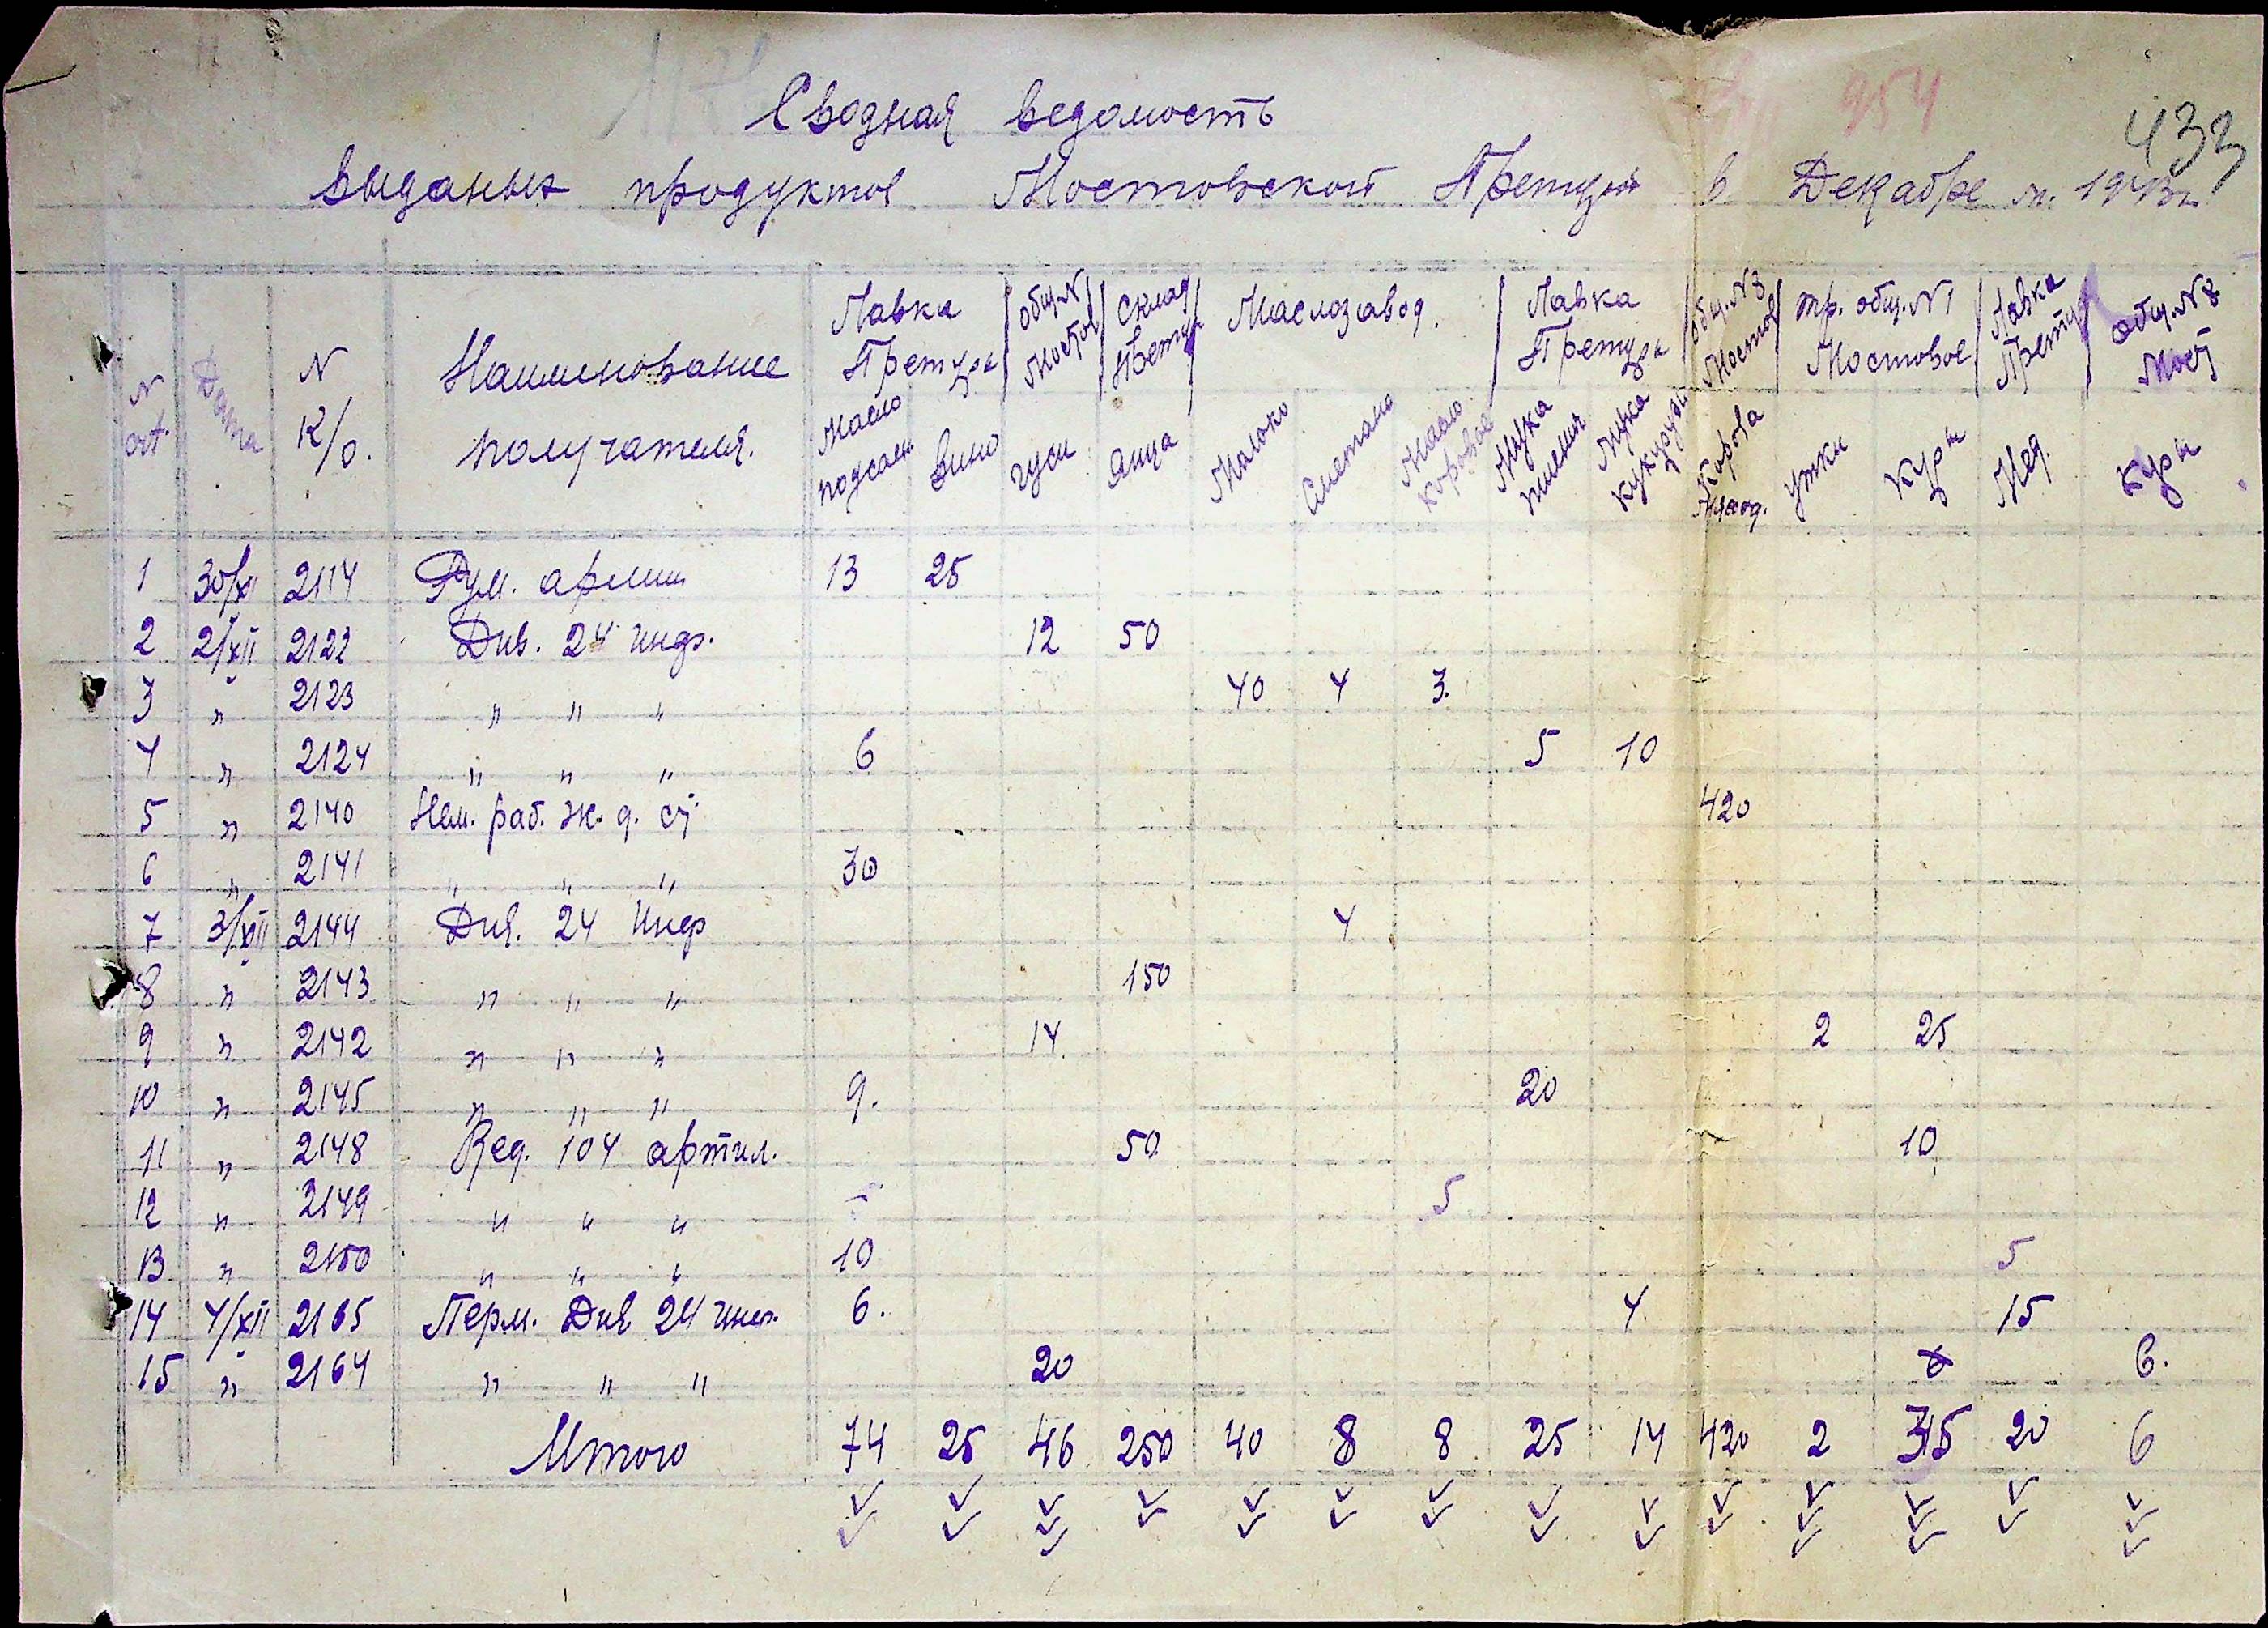 954
433
Сводная ведомость
выданых продуктов Мостовской Претурой в Декабре м. 1943 г.
N ст. Дата N К/о. Наименование получателя.
Лавка Претуры общ. N1 Мостов Склад Претур Маслозавод. Лавка Претуры общ. N8 Мостов тр. общ. N1 Мостовое Лавка Претур общ. N8 Мост
Масло подсол. Вино гуси яйца Молоко Сметана Масло коровье Мука Мука кукурузн Корова утки Куры Мед. Куры
1 30/XI 2114 Рум. армии 13 25
2 2/XII 2122 Див. 24 инф. 12 50
3 " 2123 " " " 40 4 3.
4 " 2124 " " " 6 5 10
5 " 2140 Нем. раб. ж. д. ст 420
6 " 2141 " " " 30
7 3/XII 2144 Див. 24 Инф 4
8 " 2143 " " " 150
9 " 2142 " " " 14. 2 25
10 " 2145 " " " 9. 20
11 " 2148 Рег. 104 артил. 50 10
12 " 2149 " " " 5
13 " 2150 " " " 10 5
14 4/XII 2165 Перм. Див 24 инф. 6. 4. 15
15 " 2164 " " " 20 6 6.
Итого 74 25 46 250 40 8 8 25 14 420 2 35 20 6